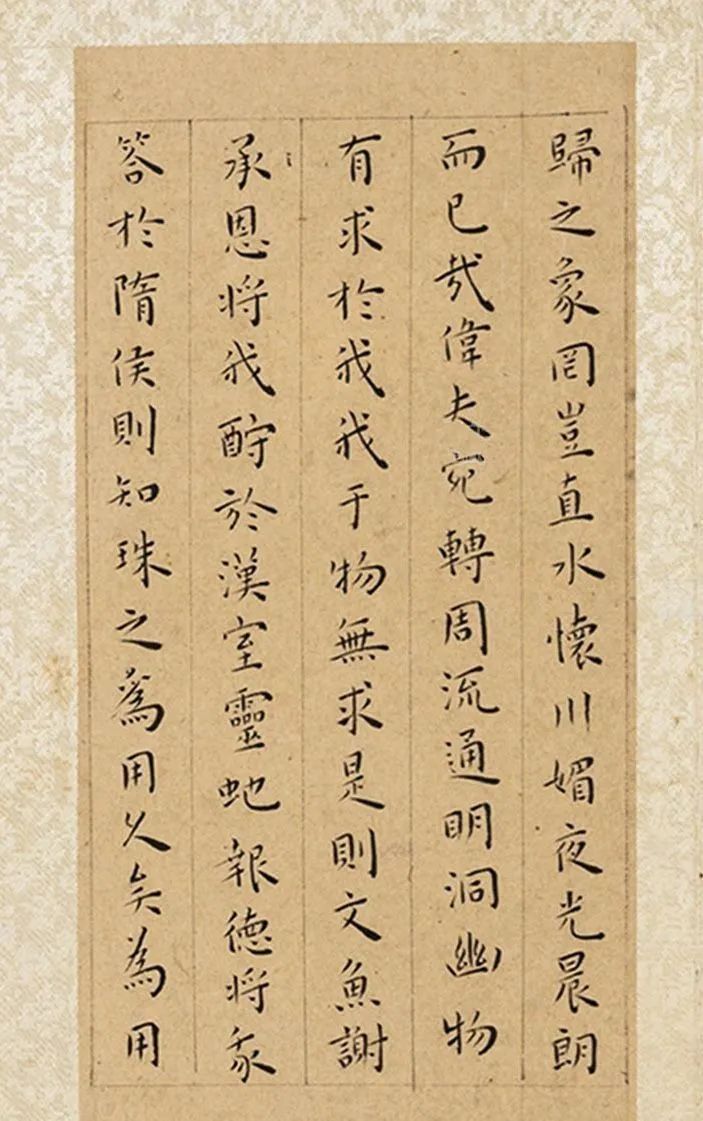 歸之象罔豈直水懷川媚夜光晨朗
而已哉偉夫宛轉周流通明洞幽物
有求於我我于物無求是則文魚謝
承恩將我酧於漢室靈虵報德將我
答於隋侯則知珠之為用久矣為用